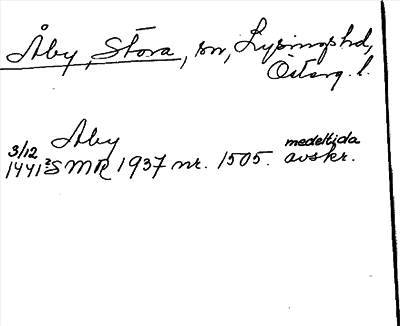 Åby, Stora, sn, Lysings hd,
Österg. l.
Åby
3/12 1441? SMR 1937 nr. 1505. medeltida avskr.